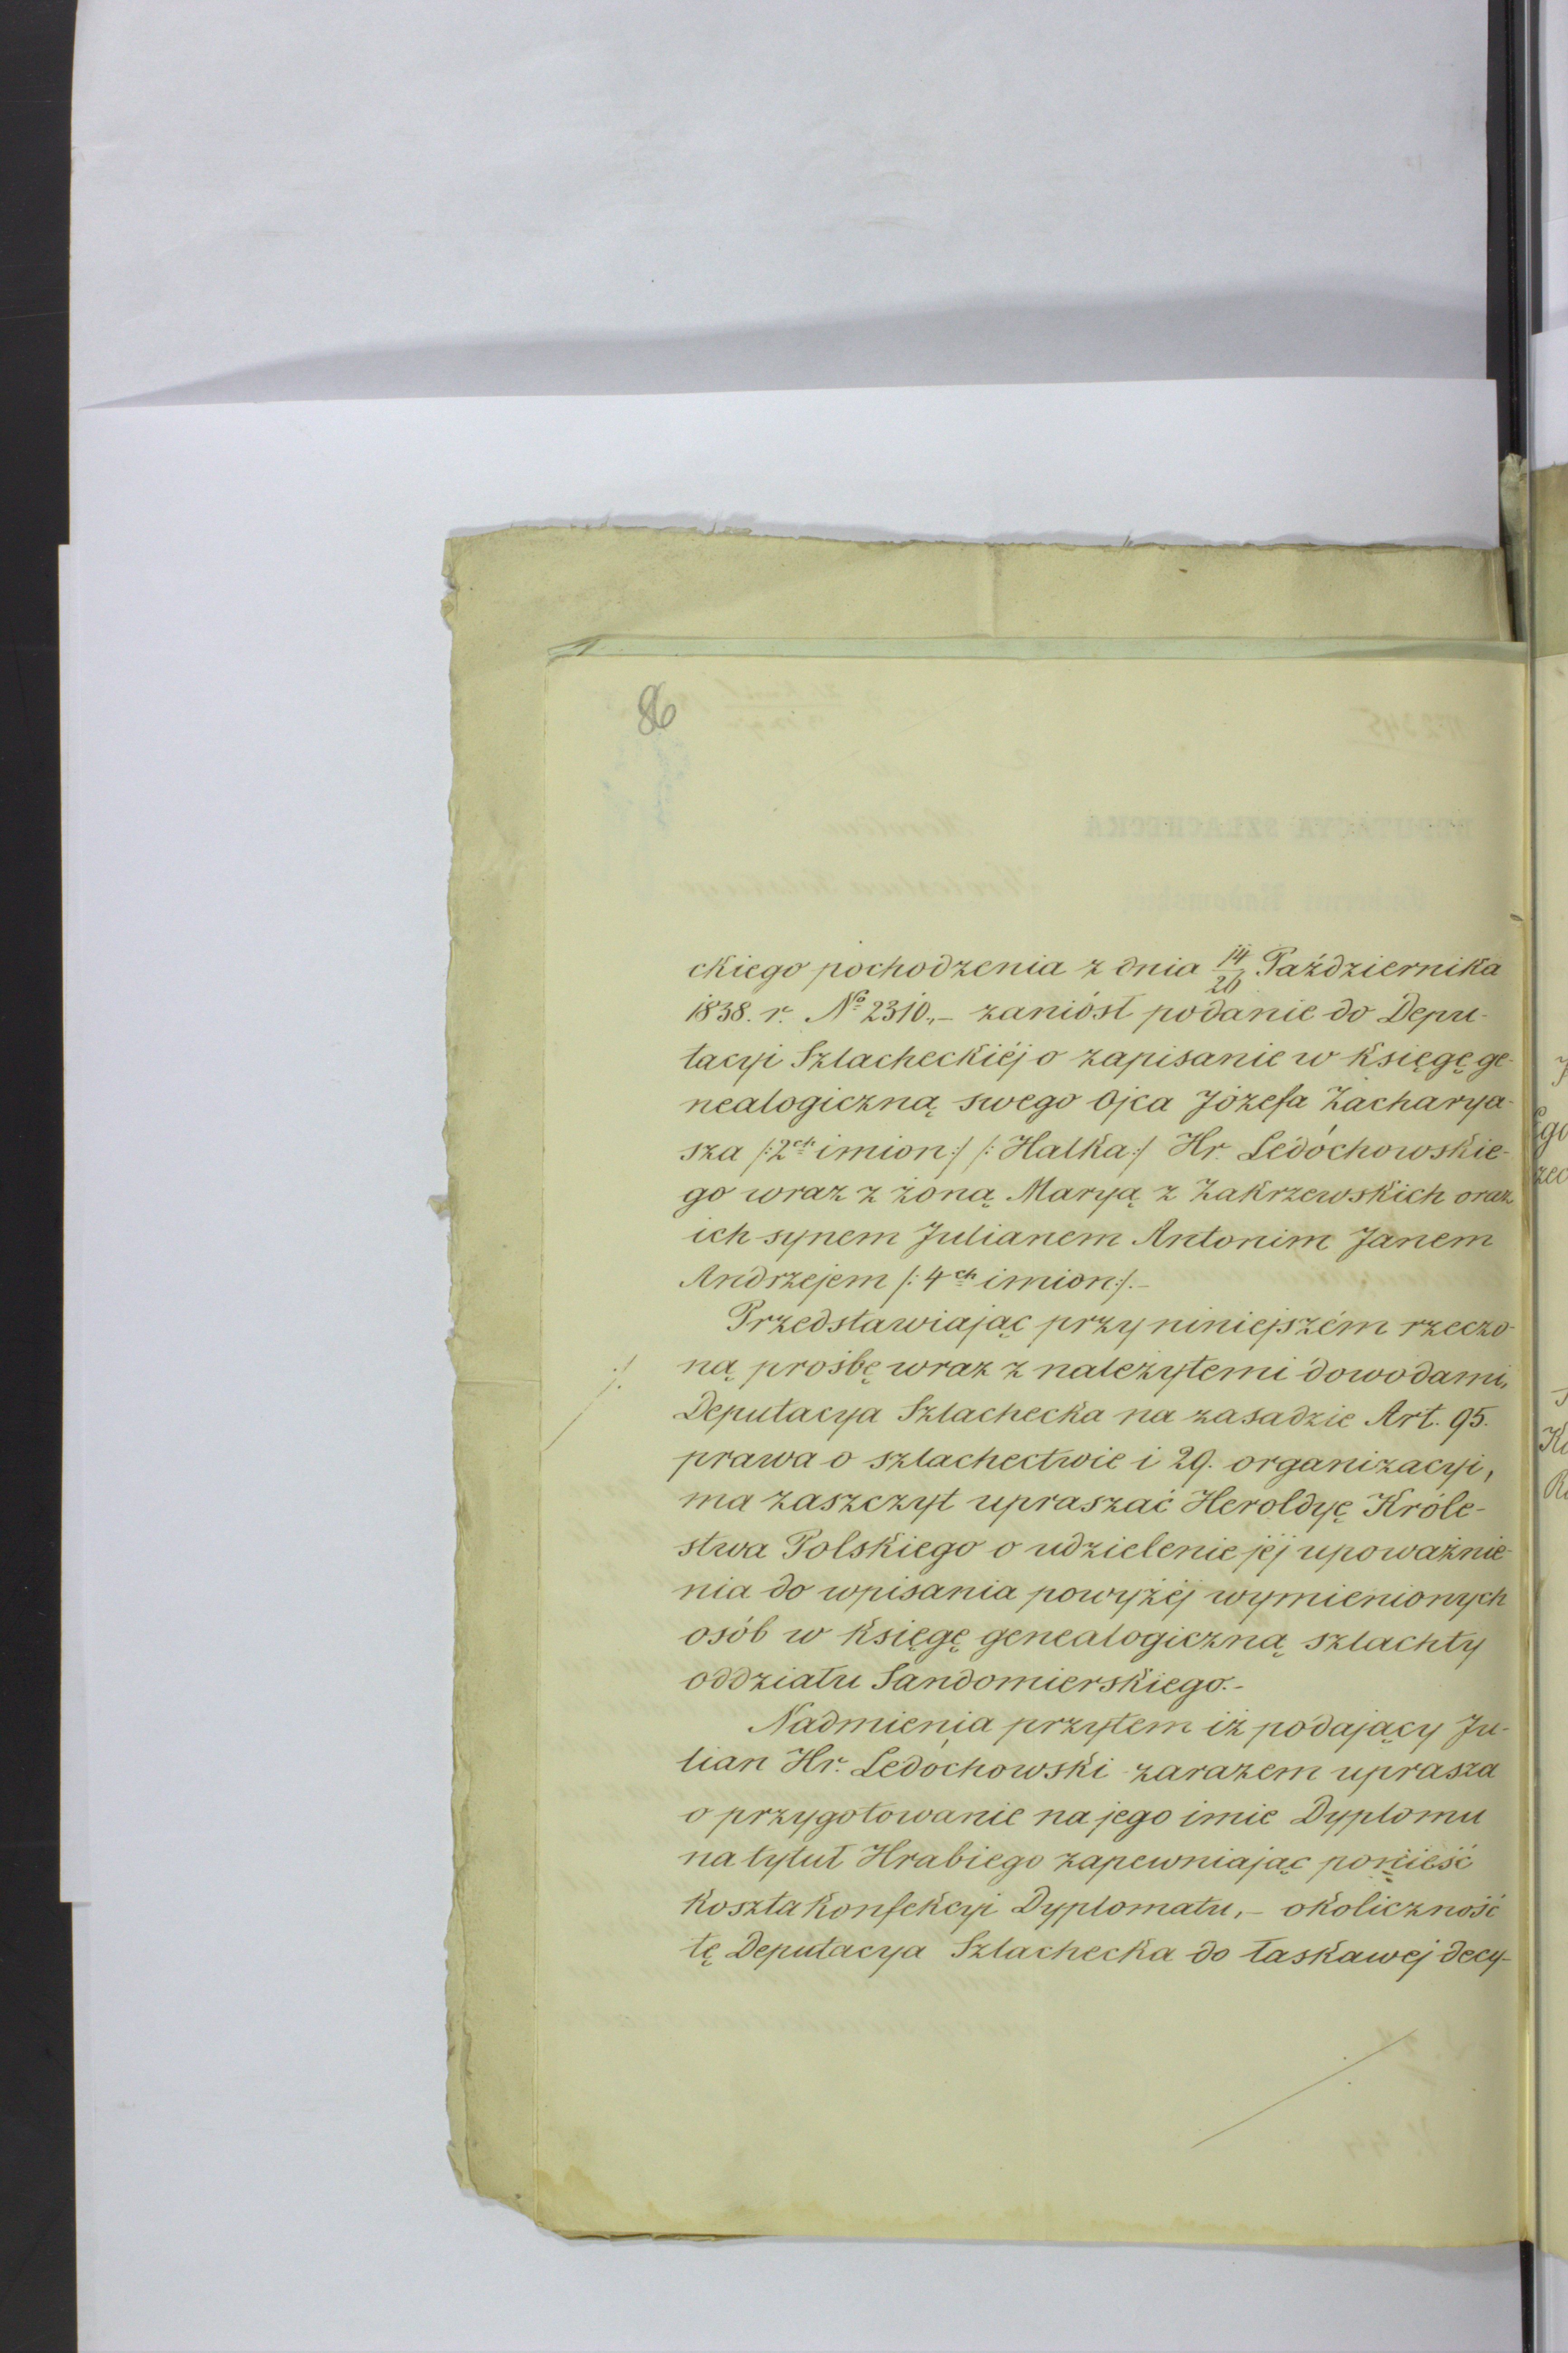 86
ckiego pochodzenia z dnia 14/26 Października
1838. r. No 2310.,- zaniósł podanie do Depu-
tacyi Szlacheckiéj o zapisanie w księgę ge-
nealogiczną swego Ojca Józefa Zacharya-
sza /:2ch imion:/ /:Halka:/ Hr. Ledóchowskie-
go wraz z żoną Maryą z Zakrzewskich oraz
ich synem Julianem Antonim Janem
Andrzejem /:4ch imion:/.-
Przedstawiając przy niniejszém rzeczo-
ną prośbę wraz z należytemi dowodami,
Deputacya Szlachecka na zasadzie Art. 95.
prawa o szlachectwie i 29. organizacyi,
ma zaszczyt upraszać Heroldyę Króle-
stwa Polskiego o udzielenie jéj upoważnie-
nia do wpisania powyżéj wymienionych
osób w księgę genealogiczną szlachty
oddziału Sandomierskiego.-
Nadmienia przytem iż podający Ju-
lian Hr. Ledóchowski zarazem uprasza
o przygotowanie na jego imie Dyplomu
na tytuł Hrabiego zapewniając ponieść
koszta konfekcyi Dyplomatu,- okoliczność
tę Deputacya Szlachecka do łaskawej decy-